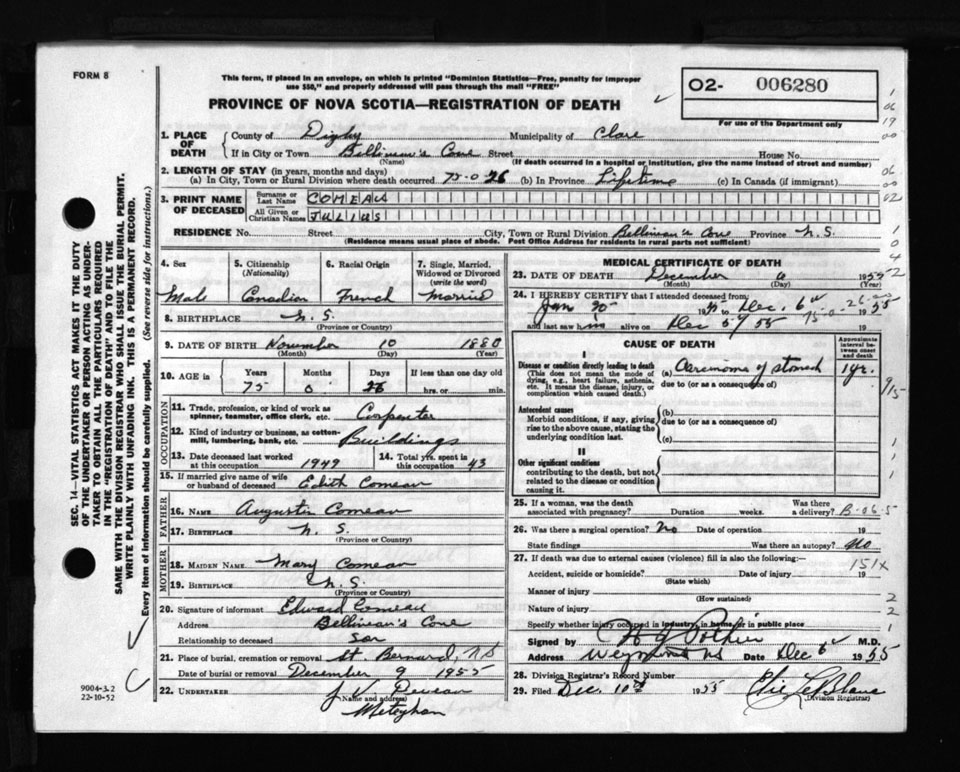 FORM 8
This form, if placed in an envelope, on which is printed "Dominion Statistics—Free, penalty for improper
use $50," and properly addressed will pass through the mail "FREE"
PROVINCE OF NOVA SCOTIA—REGISTRATION OF DEATH
O2- 006280
For use of the Department only
1. PLACE OF DEATH
County of Digby Municipality of Clare
If in City or Town Belliveau's Cove Street House No.
(Name) (If death occurred in a hospital or institution, give the name instead of street and number)
2. LENGTH OF STAY (in years, months and days)
(a) In City, Town or Rural Division where death occurred 75-0-26 (b) In Province Lifetime (c) In Canada (if immigrant)
3. PRINT NAME OF DECEASED
Surname or Last Name COMEAU
All Given or Christian Names JULIUS
RESIDENCE No. Street City, Town or Rural Division Belliveau's Cove Province N.S.
(Residence means usual place of abode. Post Office Address for residents in rural parts not sufficient)
4. Sex 5. Citizenship (Nationality) 6. Racial Origin 7. Single, Married, Widowed or Divorced (write the word)
Male Canadian French Married
8. BIRTHPLACE N.S.
(Province or Country)
9. DATE OF BIRTH November 10 1880
(Month) (Day) (Year)
10. AGE in Years Months Days If less than one day old
75 0 26 hrs. or min.
OCCUPATION
11. Trade, profession, or kind of work as
spinner, teamster, office clerk, etc. Carpenter
12. Kind of industry or business, as cotton-
mill, lumbering, bank, etc. Buildings
13. Date deceased last worked at this occupation 1949 14. Total yrs. spent in this occupation 43
15. If married give name of wife
or husband of deceased Edith Comeau
FATHER
16. NAME Augustin Comeau
17. BIRTHPLACE N.S.
(Province or Country)
MOTHER
18. MAIDEN NAME Mary Comeau
19. BIRTHPLACE N.S.
(Province or Country)
20. Signature of informant Edward Comeau
Address Belliveau's Cove
Relationship to deceased Son
21. Place of burial, cremation or removal St. Bernard, N.S
Date of burial or removal December 9 1955
22. UNDERTAKER
(Name and address)
Meteghan
MEDICAL CERTIFICATE OF DEATH
23. DATE OF DEATH December 6 1955
(Month) (Day)
24. I HEREBY CERTIFY that I attended deceased from
Jan to Dec. 6 1955
and last saw him alive on Dec 5 / 55 19
75-0-26
CAUSE OF DEATH
Approximate interval between onset and death
I
Disease or condition directly leading to death
(This does not mean the mode of dying, e.g., heart failure, asthenia, etc. It means the disease, injury, or complication which caused death.)
(a) Carcinoma of stomach 1 yr.
due to (or as a consequence of)
Antecedent causes
Morbid conditions, if any, giving rise to the above cause, stating the underlying condition last.
(b)
due to (or as a consequence of)
(c)
II
Other significant conditions
contributing to the death, but not related to the disease or condition causing it.
25. If a woman, was the death associated with pregnancy? Duration weeks. Was there a delivery? B-06-5
26. Was there a surgical operation? No Date of operation 19
State findings Was there an autopsy? No
27. If death was due to external causes (violence) fill in also the following: 151x
Accident, suicide or homicide? Date of injury 19
(State which)
Manner of injury
(How sustained)
Nature of injury
Specify whether injury occurred in industry, in home or in public place
Signed by Pothier M.D.
Address Weymouth NS Date Dec 6 1955
28. Division Registrar's Record Number
29. Filed Dec. 10th 1955 Elie LeBlanc
(Division Registrar)
SEC. 14—VITAL STATISTICS ACT MAKES IT THE DUTY
OF THE UNDERTAKER OR PERSON ACTING AS UNDER-
TAKER TO OBTAIN ALL THE PARTICULARS REQUIRED
IN THE "REGISTRATION OF DEATH" AND TO FILE THE
SAME WITH THE DIVISION REGISTRAR WHO SHALL ISSUE THE BURIAL PERMIT.
WRITE PLAINLY WITH UNFADING INK. THIS IS A PERMANENT RECORD.
Every item of information should be carefully supplied. (See reverse side for instructions.)
9004-3.2
22-10-52